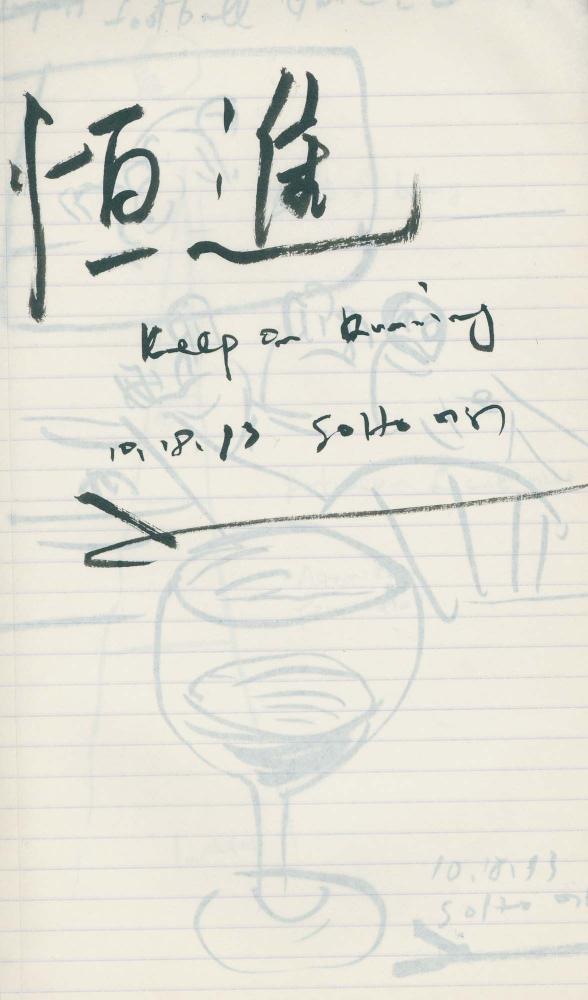 football
恒進
Keep on Running
10.18.93 SoHo
10.18.93
SoHo